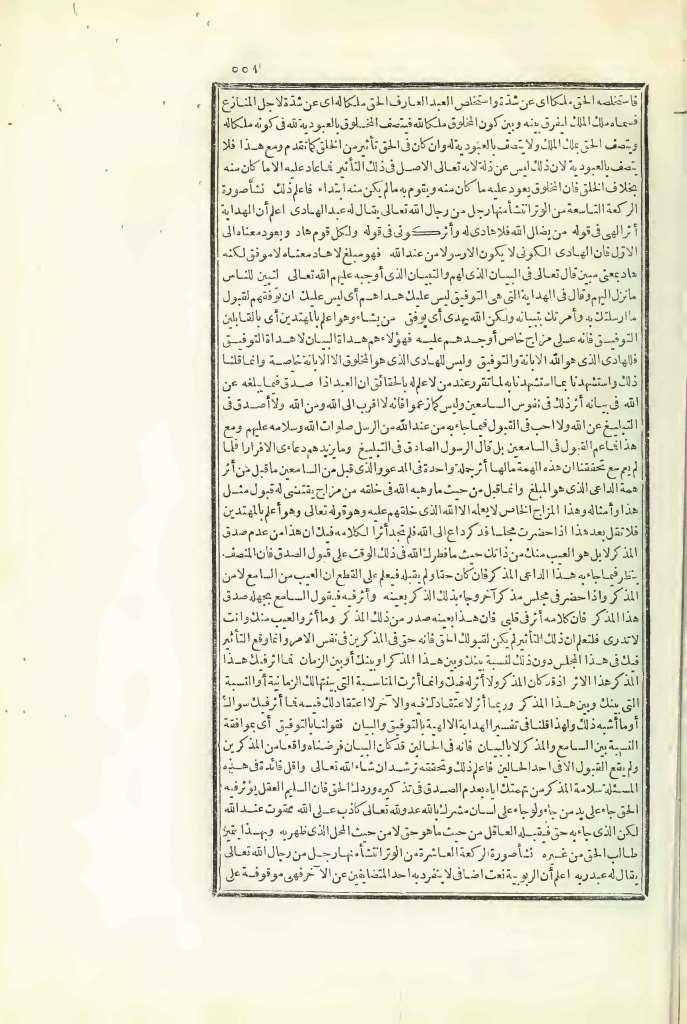 ٥٥٨
فاستخلصه الحق ملكا اى عن شدة واستخلص العبد العارف الحق ملكا له اى عن شدة لاجل المنازع
فسماه ملك الملك ليفرق بينه وبين كون المخلوق ملكا لله فيتصف المخلوق بالعبودية لله فى كونه ملكا له
ويتصف الحق بملك الملك ولا يتصف بالعبودية له وان كان فى الحق تأثير من الخلق كما تقدم ومع هذا فلا
يتصف بالعبودية لان ذلك ليس عن ذلة لانه تعالى الاصل فى ذلك التأثير فما عاد عليه الا ما كان منه
بخلاف الخلق فان المخلوق يعود عليه ما كان منه ويقوم به ما لم يكن منه ابتداء فاعلم ذلك نشأ صورة
الركعة التاسعة من الوتر انتشأ منها رجل من رجال الله تعالى يقال له عبد الهادى اعلم أن الهداية
أثر الهى فى قوله من يضلل الله فلا هادى له وأثر كونى فى قوله ولكل قوم هاد ويعود معناه الى
الاول فان الهادى الكونى لا يكون الا رسولا من عند الله فهو مبلغ لا هاد معناه لا موفق لكنه
هاد بمعنى مبين قال تعالى فى البيان الذى لهم والتبيان الذى أوجبه عليهم الله تعالى لتبين للناس
ما نزل اليهم وقال فى الهداية التى هى التوفيق ليس عليك هداهم أى ليس عليك ان توفقهم لقبول
ما أرسلتك به وأمرتك بتبيانه ولكن الله يهدى أى يوفق من يشاء وهو اعلم بالمهتدين أى بالقابلين
التوفيق فانه على مزاج خاص أوجدهم عليه فهؤلاء هم هداة البيان لا هداة التوفيق
فللهادى الذى هو الله الابانة والتوفيق وليس للهادى الذى هو المخلوق الا الابانة خاصة وانما قلنا
ذلك واستشهدنا بما استشهدنا به لما تقرر عند من لا علم له بالحقائق ان العبد اذا صدق فيما يبلغه عن
الله فى بيانه أثر ذلك فى نفوس السامعين وليس كما زعموا فانه لا اقرب الى الله ومن الله ولا أصدق فى
التبليغ عن الله ولا احب فى القبول فيما جاء به من عند الله من الرسل صلوات الله وسلامه عليهم ومع
هذا فما عم القبول فى السامعين بل قال الرسول الصادق فى التبليغ وما يزيدهم دعاءى الا فرارا فلما
لم يعم مع تحققنا ان هذه الهمة مالها أثر جملة واحدة فى المدعو والذى قبل من السامعين ما قبل من أثر
همة الداعى الذى هو المبلغ وانما قبل من حيث ما وهبه الله فى خلقه من مزاج يقتضى له قبول مثل
هذا وأمثاله وهذا المزاج الخاص لا يعلمه الا الله الذى خلقهم عليه وهو قوله تعالى وهو أعلم بالمهتدين
فلا تقل بعد هذا اذا حضرت مجلس مذكر داع الى الله فلم تجد أثرا لكلامه فيك ان هذا من عدم صدق
المذكر لا بل هو العيب منك من ذاتك حيث ما فطرك الله فى ذلك الوقت على قبول الصدق فان المنصف
ينظر فيما جاء به هذا الداعى المذكر فان كان حقا ولم يقبله فيعلم على القطع ان العيب من السامع لا من
المذكر واذا حضر فى مجلس مذكر آخر وجاء بذلك الذكر بعينه وأثر فيه فيقول السامع بجهله صدق
هذا المذكر فان كلامه أثر فى قلبى فان هذا بعينه صدر من ذلك المذكر وما أثر والعيب منك وانت
لا تدرى فلتعلم ان ذلك التأثير لم يكن لقبولك الحق فانه حق فى المذكرين فى نفس الامر وانما وقع التأثير
فيك فى هذا المجلس دون ذلك لنسبة بينك وبين هذا المذكر او بينك أو بين الزمان فما اثر فيك هذا
المذكر هذا الاثر اذ قد كان المذكر ولا أثر له فيك وانما أثرت المناسبة التى بينهما لك الزمانية أو النسبة
التى بينك وبين هذا المذكر وربما أثر لاعتقادك فيه والآخر لا اعتقاد لك فيه فما أثر فيك سواك
أو ما أشبه ذلك ولهذا قلنا فى تفسير الهداية الالهية بالتوفيق والبيان فقولنا بالتوفيق أى بموافقة
النسبة بين السامع والمذكر لا بالبيان فانه فى الحالين قد كان البيان فرضناه واقعا من المذكرين
ولم يقع القبول الا فى احد الحالين فاعلم ذلك وتحققته ترشد ان شاء الله تعالى واقل فائدة فى هذه
المسئلة سلامة المذكر من تهمتك اياه بعدم الصدق فى تذكيره وردك الحق فان السليم العقل يؤثر فيه
الحق جاء على يد من جاء ولو جاء على لسان مشرك بالله عدو لله تعالى كاذب على الله ممقوت عند الله
لكن الذى جاء به حق فيقبله العاقل من حيث ما هو حق لا من حيث المحل الذى ظهر به وبهذا يتميز
طالب الحق من غيره نشأ صورة الركعة العاشرة من الوتر انتشأ منها رجل من رجال الله تعالى
يقال له عبد ربه اعلم أن الربوبية نعت اضافى لا ينفرد به احد المتضايفين عن الآخر فهى موقوفة على